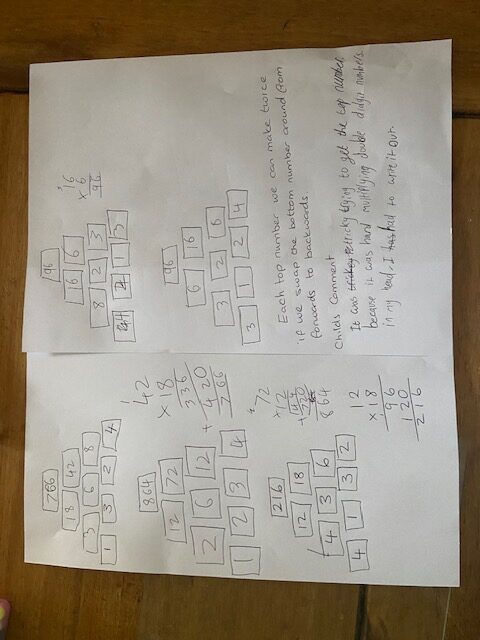 766
18 42
3 6 8
1 3 2 4
1
42
× 18
336
+ 420
766
864
12 72
2 6 12
1 2 3 4
72
× 12
144
+ 720
864
216
12 18
4 3 6
4 1 3 2
12
× 18
96
120
216
96
16 6
8 2 3
1 3
16
× 6
96
96
6 16
3 2 8
3 1 2 4
Each top number we can make twice
if we swap the bottom number around from
forwards to backwards
Childs comment
It was tricky trying to get the top number
because it was hard multiplying double didgit numbers
in my head, I had to write it out.